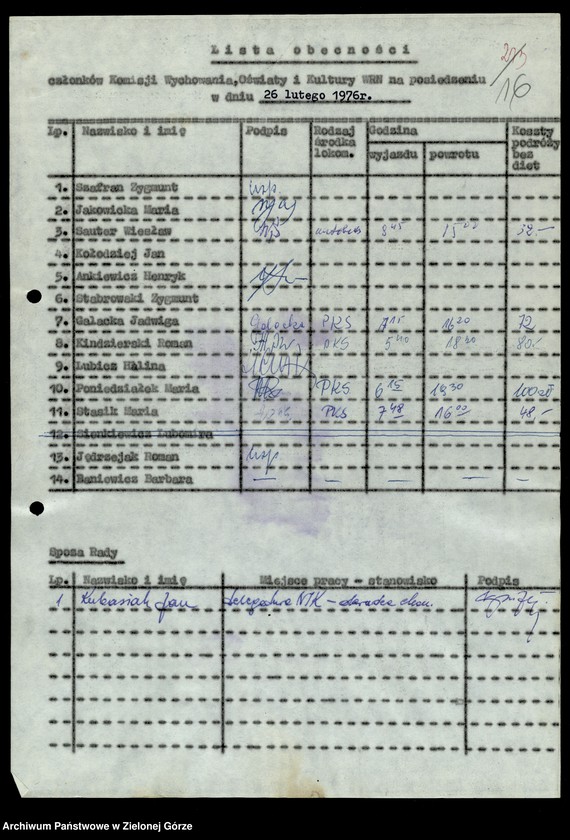 Lista obecności
członków Komisji Wychowania,Oświaty i Kultury WRN na posiedzeniu
w dniu 26 lutego 1976r.
16
Lp. Nazwisko i imię Podpis Rodzaj środka lokom. Godzina wyjazdu powrotu Koszty podróży bez diet
1. Szafran Zygmunt usp.
2. Jakowicka Maria
3. Sauter Wiesław autobus 8 45 15 00 32.-
4. Kołodziej Jan
5. Ankiewicz Henryk
6. Stabrowski Zygmunt
7. Gałacka Jadwiga PKS 7 15 16 20 72
8. Kindzierski Roman PKS 5 40 80.-
9. Lubicz Halina
10. Poniedziałek Maria PKS 6 15 19 30 100 zł
11. Stasik Maria PKS 7 48 16 00 48,-
12. Sienkiewicz Lubomira
13. Jędrzejak Roman usp.
14. Baniewicz Barbara — — — — —
Spoza Rady
Lp. Nazwisko i imię Miejsce pracy - stanowisko Podpis
1 Kubasiak Jan Delegatura NIK -
Archiwum Państwowe w Zielonej Górze